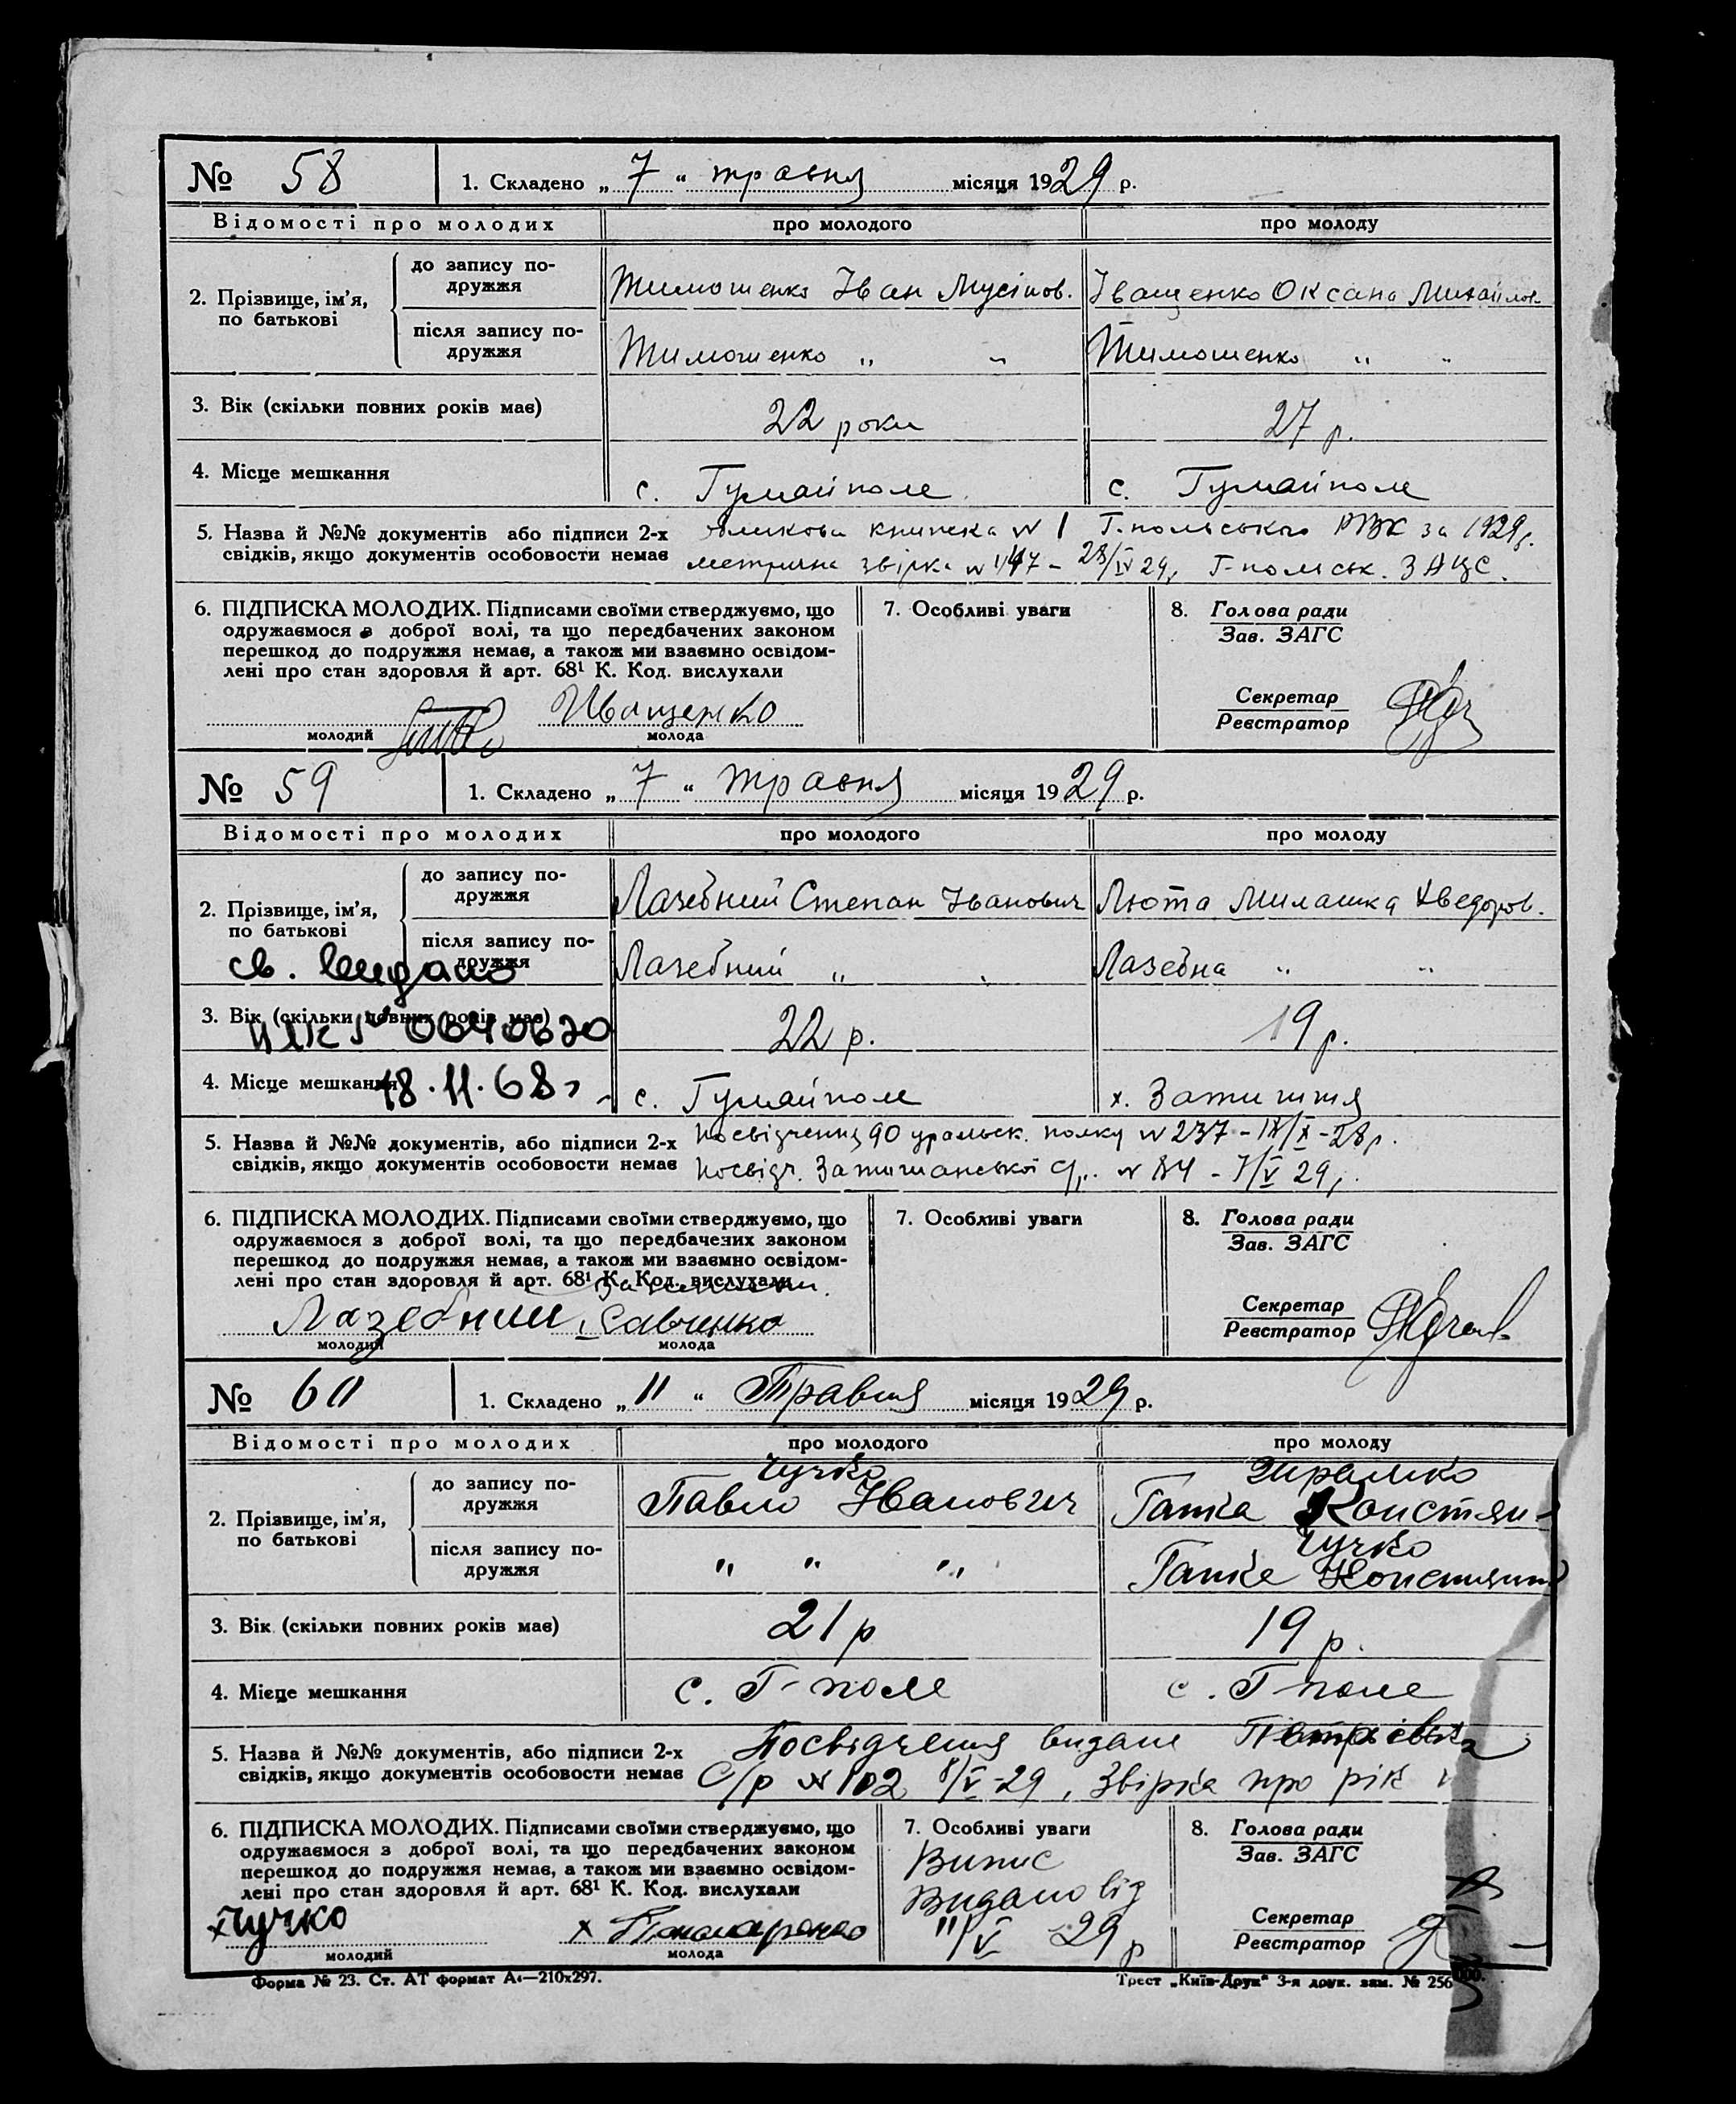 № 58 1. Складено „ 7 “ травня місяця 1929 р.
Відомості про молодих про молодого про молоду
2. Прізвище, ім’я, по батькові
до запису по-
дружжя
Тимошенко Іван Мусійов. Іващенко Оксана Михайлов.
після запису по-
дружжя
Тимошенко „ „ Тимошенко „ „
3. Вік (скільки повних років має) 22 роки 27 р.
4. Місце мешкання с. Гумайполе с. Гумайполе
5. Назва й №№ документів або підписи 2-х
свідків, якщо документів особовости немає
книжка № 1 Г. польського РВК за 1929р.
метрична звірка № 147 – 28/IV 29р Г-польськ. ЗАЦС.
6. ПІДПИСКА МОЛОДИХ. Підписами своїми стверджуємо, що
одружаємося з доброї волі, та що передбачених законом
перешкод до подружжя немає, а також ми взаємно освідом-
лені про стан здоровля й арт. 68¹ К. Код. вислухали
Иващенко
молодий молода
7. Особливі уваги
8. Голова ради
Зав. ЗАГС
Секретар
Реєстратор
№ 59 1. Складено „ 7 “ травня місяця 1929 р.
Відомості про молодих про молодого про молоду
2. Прізвище, ім’я,
по батькові
до запису по-
дружжя
Лазебний Степан Іванович Люта Милашка Хведоров.
після запису по-
дружжя
Лазебний „ „ Лазебна „ „
св. видано
0640630
18.11.68г
3. Вік (скільки повних років має) 22 р. 19 р.
4. Місце мешкання с. Гумайполе х. Затишшя
5. Назва й №№ документів, або підписи 2-х
свідків, якщо документів особовости немає
посвідчення 90 уральск. полку № 237 – IX/X – 28 р.
посвідч. Затишанської с/р. № 84 – 7/V 29р.
6. ПІДПИСКА МОЛОДИХ. Підписами своїми стверджуємо, що
одружаємося з доброї волі, та що передбачених законом
перешкод до подружжя немає, а також ми взаємно освідом-
лені про стан здоровля й арт. 68¹ К. Код. вислухали
Лазебний Савченко
молодий молода
7. Особливі уваги
8. Голова ради
Зав. ЗАГС
Секретар
Реєстратор
№ 60 1. Складено „ 11 “ Травня місяця 1929 р.
Відомості про молодих про молодого про молоду
2. Прізвище, ім’я,
по батькові
до запису по-
дружжя
Чучко
Павло Іванович Гапка Констян-
після запису по-
дружжя
Чучко
„ „ „ Гапка Констянт
3. Вік (скільки повних років має) 21 р 19 р.
4. Місце мешкання с. Г-поле с. Г-поле
5. Назва й №№ документів, або підписи 2-х
свідків, якщо документів особовости немає
Посвідчення видане
С/р № 102 8/V-29, Звірка про рік
6. ПІДПИСКА МОЛОДИХ. Підписами своїми стверджуємо, що
одружаємося з доброї волі, та що передбачених законом
перешкод до подружжя немає, а також ми взаємно освідом-
лені про стан здоровля й арт. 68¹ К. Код. вислухали
х Чучко х
молодий молода
7. Особливі уваги
Випис
Видано від
11/V 29 р
8. Голова ради
Зав. ЗАГС
Секретар
Реєстратор
Форма № 23. Ст. АТ формат А₄—210х297. Трест „Київ-Друк“ 3-я друк. зам. № 256